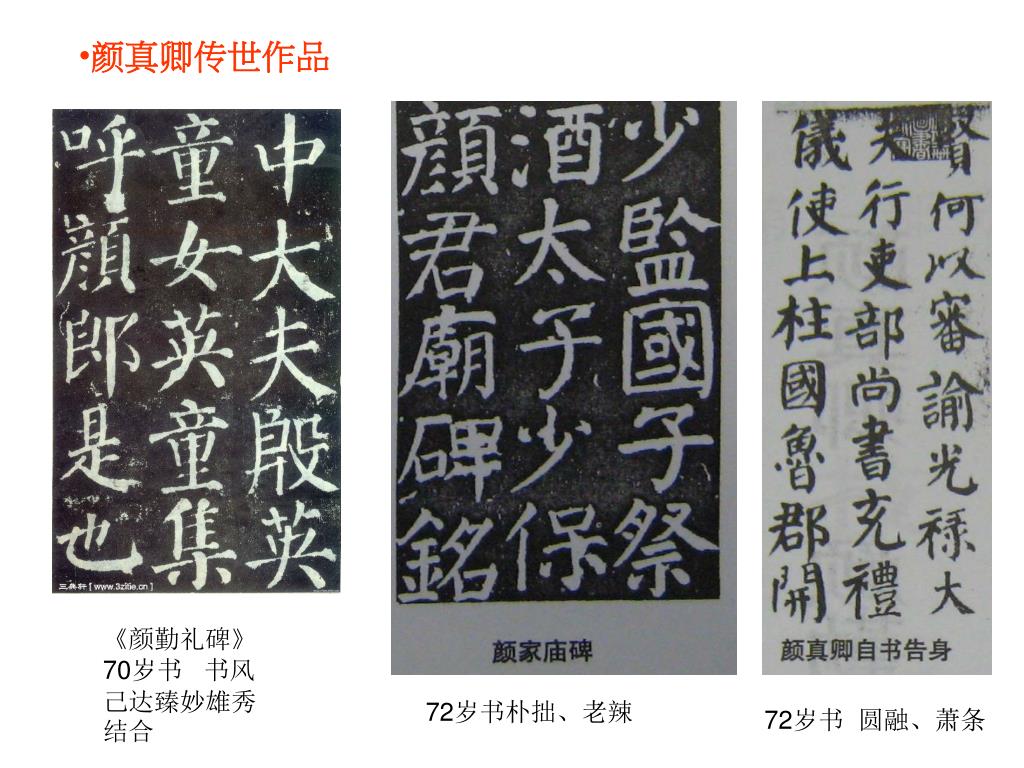 •颜真卿传世作品
中大夫殷英
童女英童集
呼顔郎是也
三典轩 [ www.3zitie.cn ]
少監國子祭
酒太子少保
顔君廟碑銘
颜家庙碑
賢何以審諭光禄大
夫行吏部尚書充禮
儀使上柱國魯郡開
颜真卿自书告身
《颜勤礼碑》
70岁书 书风
己达臻妙雄秀
结合
72岁书朴拙、老辣
72岁书 圆融、萧条